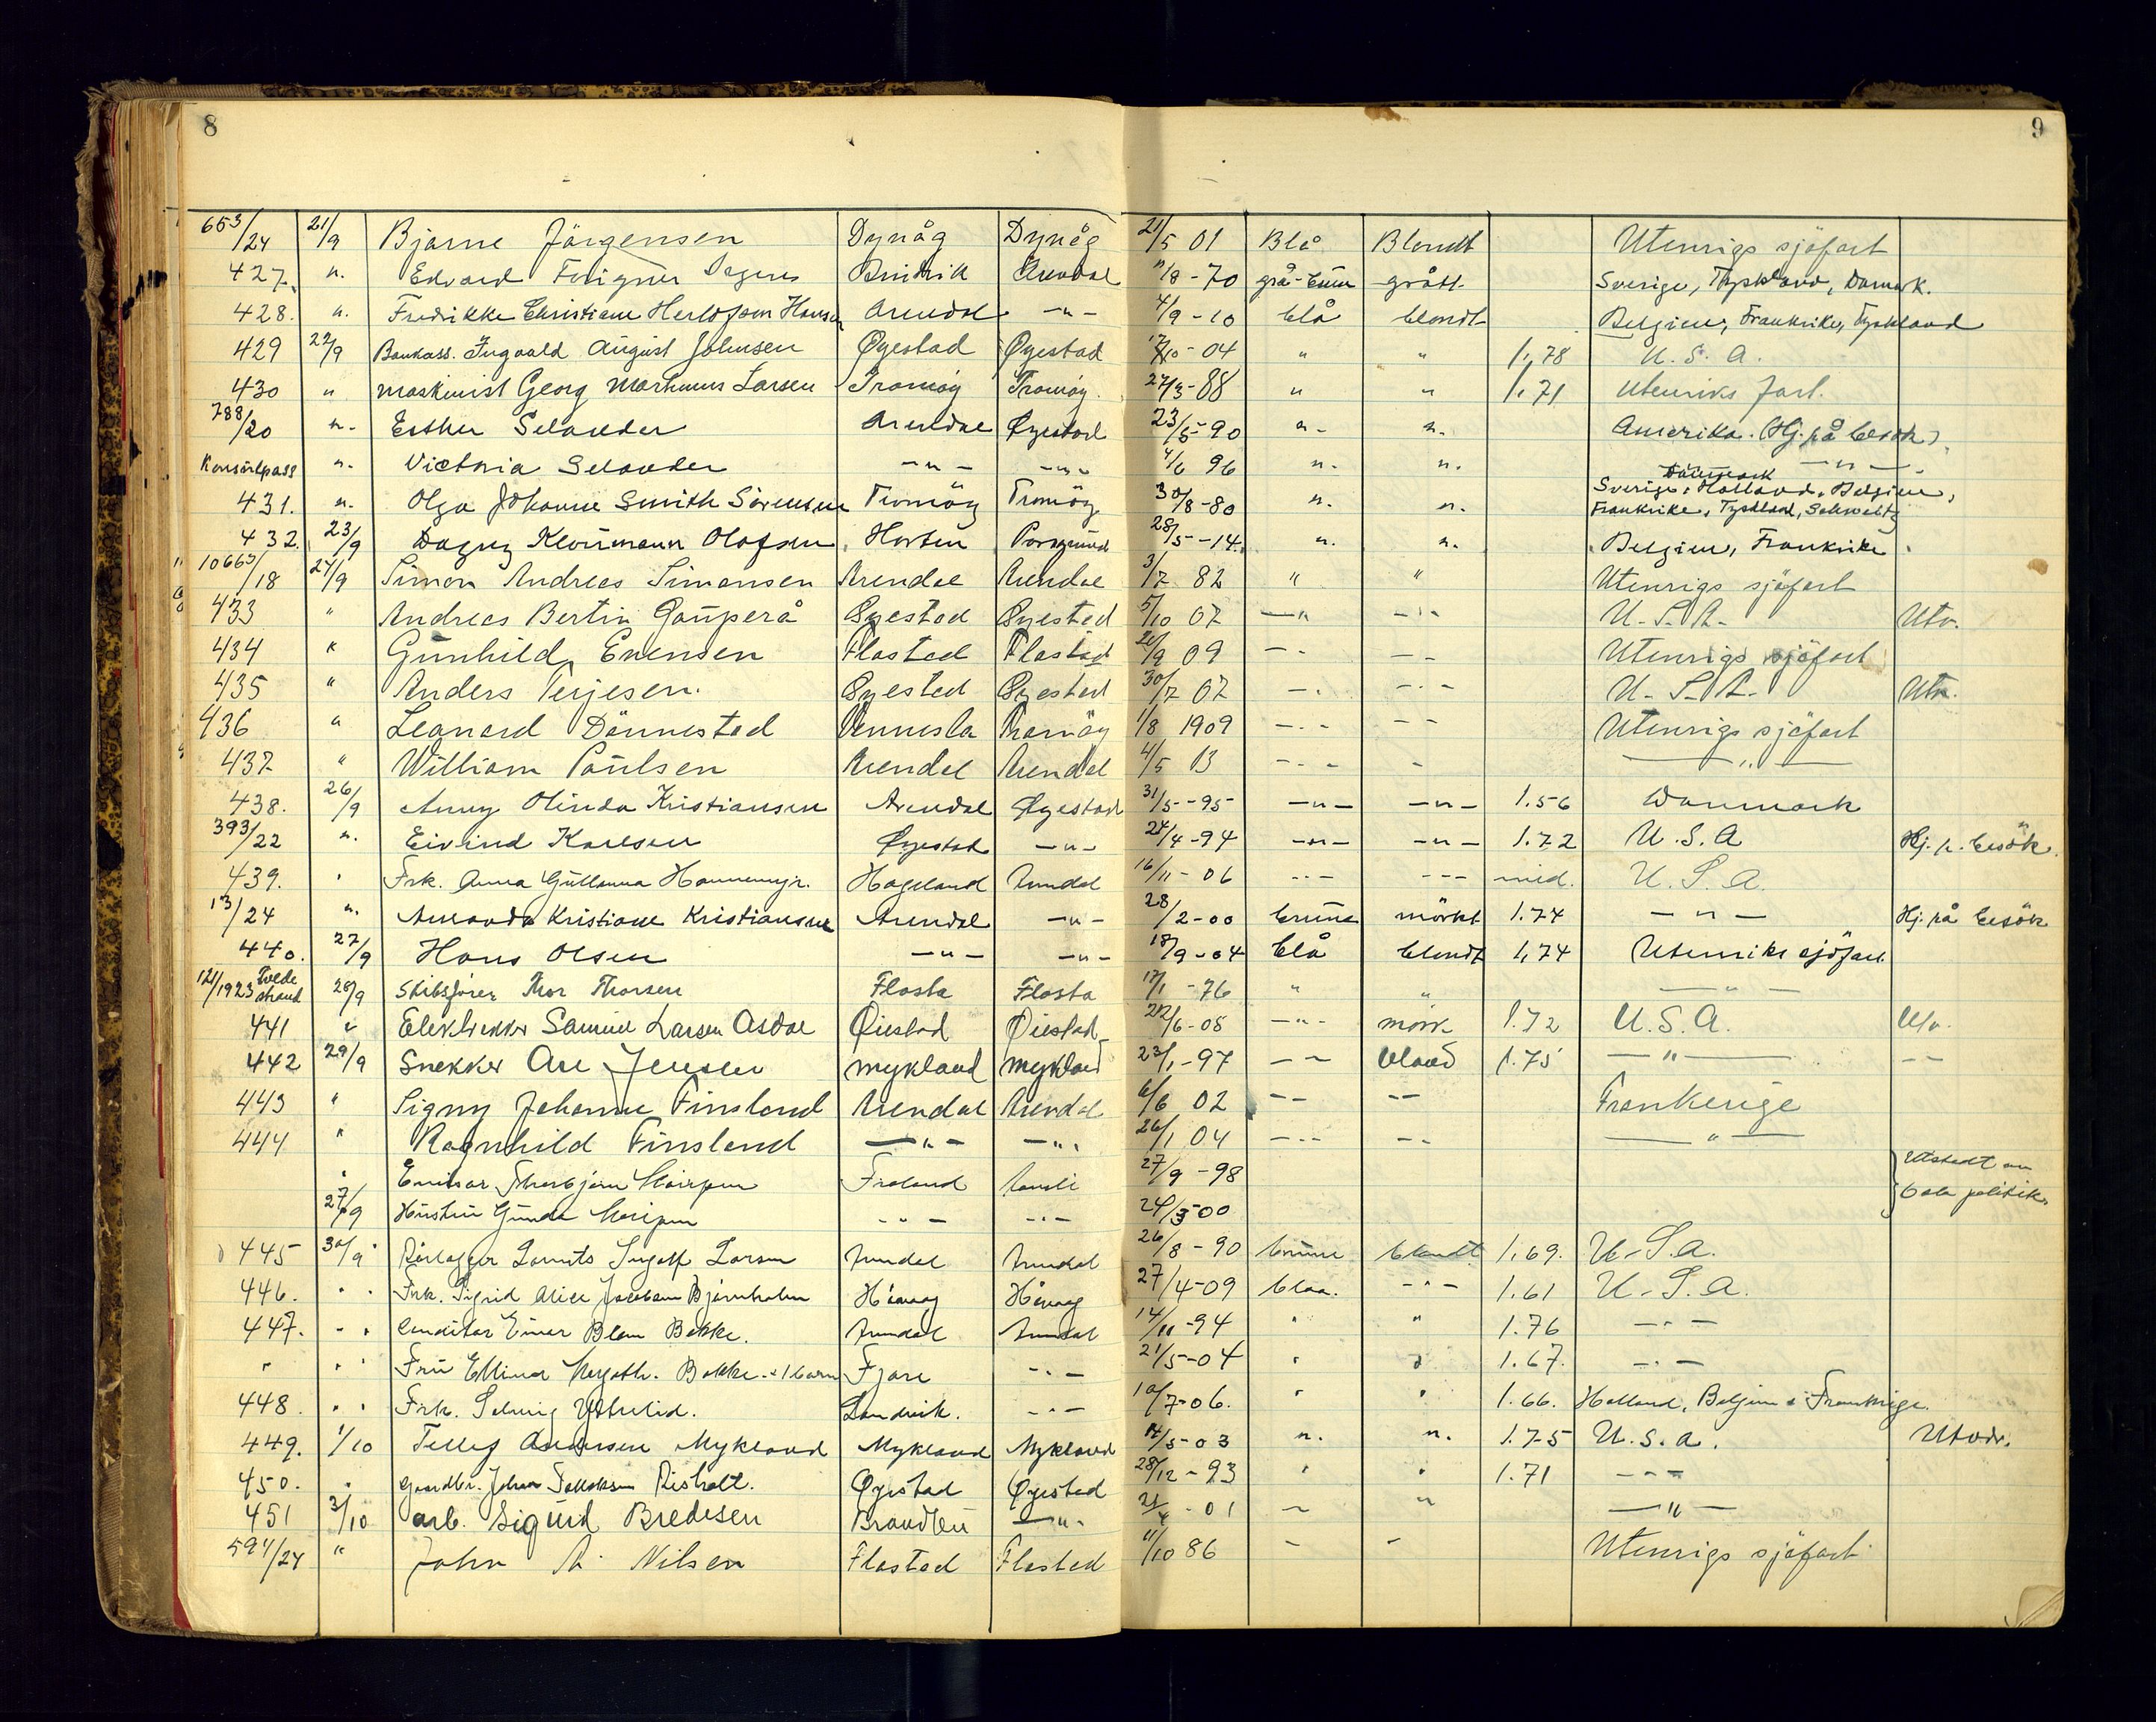 8
9
653/24 21/9 Bjarne Jörgensen Dypåg Dypåg 21/5 01 Blå Blondt Utenrigs sjöfart
427. n. Edvard Arendal 11/8-70 grå-brun grått Sverige, Tyskland, Danmark.
428. n. Fredrikke Christiane Herlofsen Hansen Arendal -"- 4/9-10 blå blondt Belgien, Frankrike, Tyskland
429 22/9 Bankass. Ingvald August Johnsen Øyestad Øyestad 04 " " 1,78 U.S.A.
430 " Maskinist Georg Marhinus Larsen Tromöy Tromöy. 27/3-88 " " 1,71 Utenriks fart.
788/20 n. Esther Selander Arendal Øyestad 23/5-90 n. n. Amerika. (Hj. på besök).
Konsulpass n. Victoria Selander -"- -"- 4/6 96 n. n. -"-
431. n. Olga Johanne Smith Sörensen Tromöy Tromöy 30/8-80 n. n. Sverige, Danmark Holland, Belgien,
Frankrike, Tyskland, Schweitz
432. 23/9 Dagny Klouman Olafsen Horten Porsgrund 28/5-14. n. n. Belgien, Frankrike
10663/18 24/9 Simon Andreas Simonsen Arendal Arendal 3/7 82 " " Utenrigs sjöfart
433 " Andreas Bertin Gauperå Øyestad Øyestad 5/10 07 -"- -"- U.S.A. Utv.
434 " Gunhild Evensen Flosted Flosted 9 09 -"- -"- Utenrigs sjöfart
435 " Anders Terjesen. Øyestad Øyestad 30/7 07 -"- -"- U.S.A. Utv.
436 " Leonard Dönnestad Vennesla Tromöy 1/8 1909 -"- -"- Utenrigs sjöfart
437 " William Paulsen Arendal Arendal 4/5 13 -"- - -"-
438. 26/9 Anny Olinda Kristiansen Arendal Øyestad 31/5-95 -"- -"- 1.56 Danmark
393/22 n. Eivind Karlsen Øyestad -"- 24/4-94 -"- -"- 1.72 U.S.A Hj. p. besök.
439. " Frk. Anna Gullanna Hannemyr. Hægeland Arendal 16/11-06 -"- -"- med. U.S.A.
13/24 n. Amanda Kristiane Kristiansen Arendal -"- 28/2-00 brune mörkt 1.74 -"- Hj. på besök
440. 27/9 Hans Olsen -"- -"- 18/9-04 blå blondt 1,74 Utenriks sjöfart.
121/1923 Tvede strand 28/9 Skibsförer Thor Thorsen Flosta Flosta 17/1-76 " " -"-
441 " Elektrikker Samuel Larsen Asdal Øiestad Øiestad 22/6-05 -"- mörk 1.72 U.S.A. Utv.
442 29/9 Snekker Are Jensen Mykland Mykland 23/1-97 -"- blond 1.75 -"- -"-
443 " Signy Johanne Finsland Arendal Arendal 6/6 02 -"- -"- Frankerige
444 " Ragnhild Finsland -"- -"- 26/1 04 -"- -"- -"-
" Thorbjørn Froland 27/9-98 Utstedt av
27/9 Hustru Gunda -"- -"- 24/3-00 Oslo politik.
445 30/9 Rörlegger Ingolf Larsen Arendal Arendal 26/8-90 brune blondt 1.69. U.S.A.
446. " Frk. Sigrid Alice Jacobsen Bjørnholm Høvaag Høvaag 27/4-09 blaa. -"- 1.61 U.S.A.
447. " Conditor Einar Blom Bakke. Arendal Arendal 14/11-94 " " 1.76 -"-
" " Fru Ellinor Bakke + 1 barn Fjære -"- 21/5-04 " " 1.67. -"-
448. " Frk. Solveig Landvik. -"- 10/7-06. " " 1.66. Holland, Belgien & Frankrige.
449. 1/10 Tellef Andersen Mykland Mykland Mykland 14/5-03 n. n. 1.75 U.S.A. Utvdr.
450. " Gaardbr. Johan Risholt. Øyestad Øyestad 28/12-93 " " 1.71 -"-
451 3/10 arb. Sigurd Bredesen Brandbu -"- 01 - " -"-
591/24 " John A. Nilsen Flosted Flosted 11/10 86 - - Utenrigs sjöfart